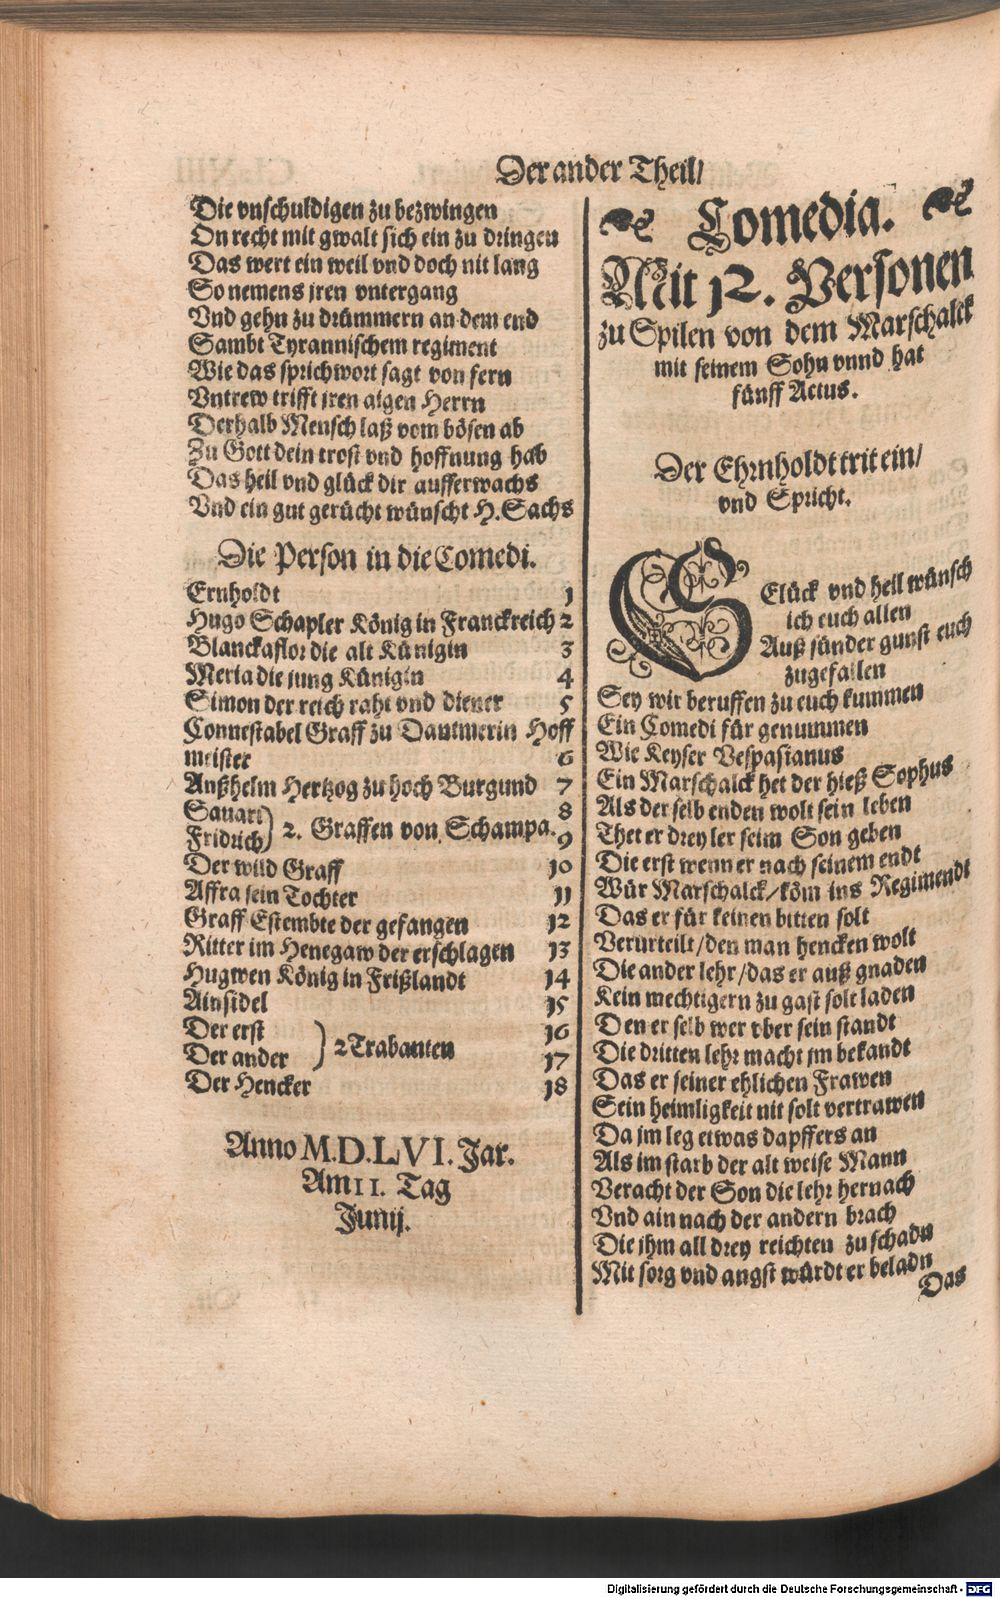 Der ander Theil/
Die vnschuldigen zu bezwingen
On recht mit gwalt sich ein zu dringen
Das wert ein weil vnd doch nit lang
So nemens jren vntergang
Vnd gehn zu drümmern an dem end
Sambt Tyrannischem regiment
Wie das sprichwort sagt von fern
Vntrew trifft jren aigen Herrn
Derhalb Mensch laß vom bösen ab
Zu Gott dein trost vnd hoffnung hab
Das heil vnd glück dir aufferwachs
Vnd ein gut gerücht wünscht H. Sachs
Die Person in die Comedi.
Ernholdt 1
Hugo Schapler König in Franckreich 2
Blanckaflor die alt Künigin 3
Meria die jung Künigin 4
Simon der reich raht vnd diener 5
Connestabel Graff zu Dautmerin Hoff
meister 6
Anßhelm Hertzog zu hoch Burgund 7
Sauari 8
Fridrich) 2. Graffen von Schampa. 9
Der wild Graff 10
Affra sein Tochter 11
Graff Estembte der gefangen 12
Ritter im Henegaw der erschlagen 13
Hugwen König in Frißlandt 14
Ainsidel 15
Der erst 16
Der ander ) 2 Trabanten 17
Der Hencker 18
Anno M.D.LVI. Jar.
Am 11. Tag
Junij.
Comedia.
Mit 12. Personen
zu Spilen von dem Marschalck
mit seinem Sohn vnnd hat
fünff Actus.
Der Ehrnholdt trit ein/
vnd Spricht.
GElück vnd heil wünsch
ich euch allen
Auß sünder gunst euch
zugefallen
Sey wir beruffen zu euch kummen
Ein Comedi für genummen
Wie Keyser Vespasianus
Ein Marschalck het der hieß Sophus
Als der selb enden wolt sein leben
Thet er drey ler seim Son geben
Die erst wenn er nach seinem endt
Wür Marschalck/köm ins Regimendt
Das er für keinen bitten solt
Verurteilt/den man hencken wolt
Die ander lehr/das er auß gnaden
Kein mechtigern zu gast solt laden
Den er selb wer vber sein standt
Die dritten lehr macht jm bekandt
Das er seiner ehlichen Frawen
Sein heimligkeit nit solt vertrawen
Da jm leg etwas dapffers an
Als im starb der alt weise Mann
Veracht der Son die lehr hernach
Vnd ain nach der andern brach
Die jhm all drey reichten zu schadn
Mit sorg vnd angst würdt er beladn
Das
Digitalisierung gefördert durch die Deutsche Forschungsgemeinschaft - DFG